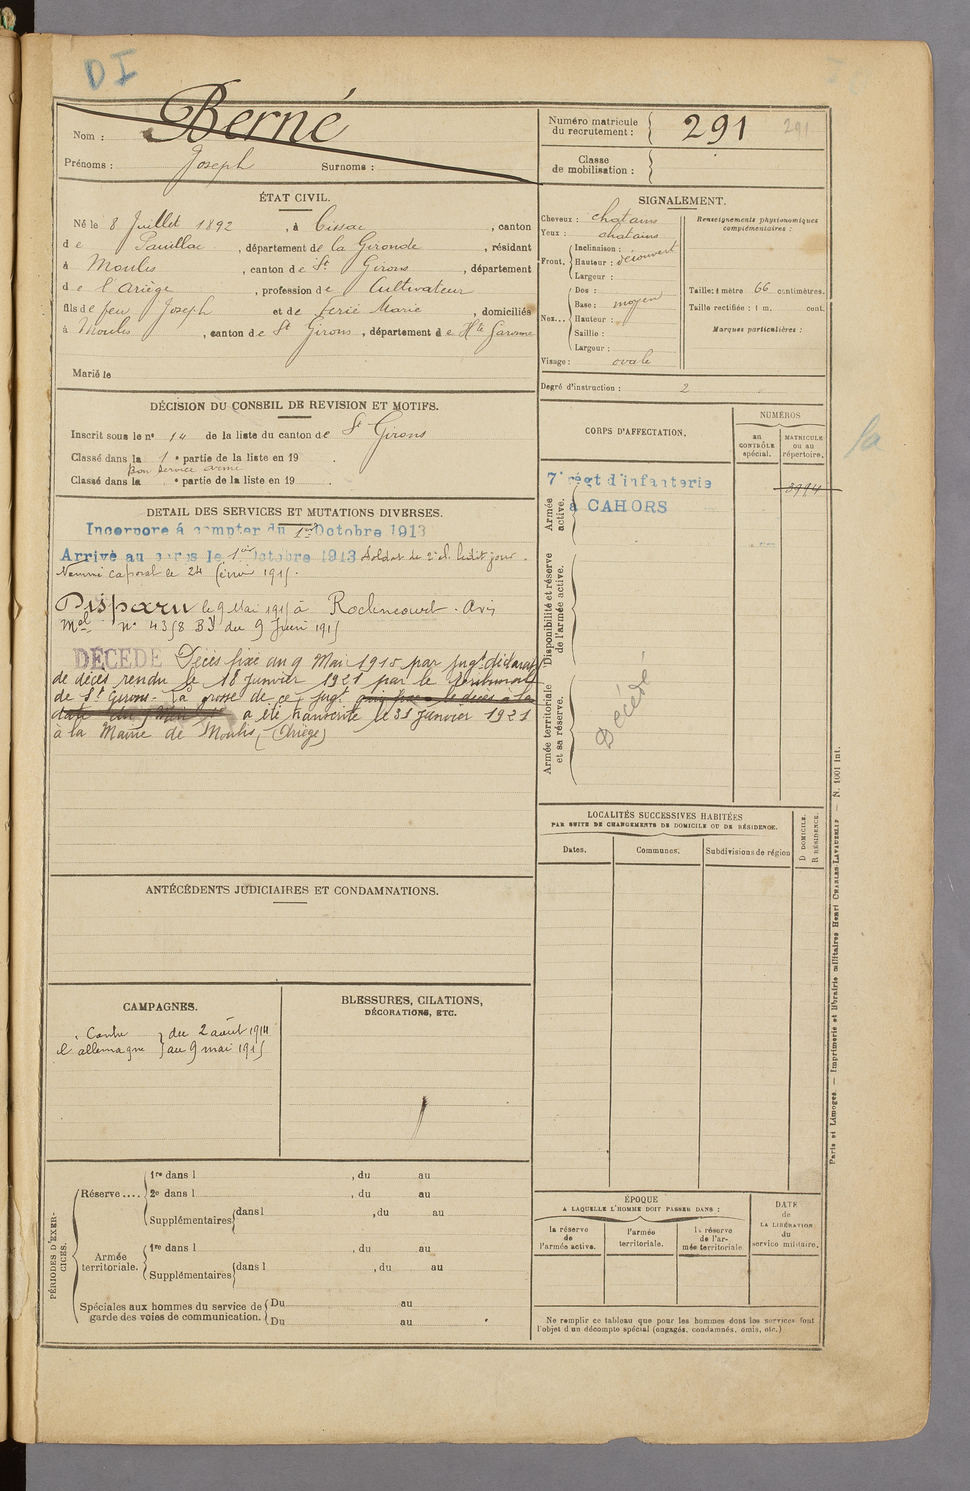 DI
Nom : Berné
Prénoms : Joseph Surnoms :
Numéro matricule du recrutement : 291 291
Classe de mobilisation :
ÉTAT CIVIL.
Né le 8 Juillet 1892, à Cissac, canton
de Pauillac, département de la Gironde, résidant
à Moulis, canton de St Girons, département
de l'Ariège, profession de Cultivateur
fils de feu Joseph et de Ferié Marie, domiciliés
à Moulis, canton de St Girons, département de Hte Garonne
Marié le
SIGNALEMENT.
Cheveux : chatains
Yeux : chatains
Front. Inclinaison :
Hauteur : découvert
Largeur :
Nez... Dos :
Base : moyen
Hauteur :
Saillie :
Largeur :
Visage : ovale
Renseignements physionomiques complémentaires :
Taille: 1 mètre 66 centimètres.
Taille rectifiée : 1 m. cent.
Marques particulières :
Degré d'instruction : 2
DÉCISION DU CONSEIL DE REVISION ET MOTIFS.
Inscrit sous le n° 14 de la liste du canton de St Girons
Classé dans la 1e partie de la liste en 19
Bon service armé
Classé dans la e partie de la liste en 19
DETAIL DES SERVICES ET MUTATIONS DIVERSES.
Incorporé à compter du 1er Octobre 1913
Arrivé au corps le 1er Octobre 1913 Soldat de 2e cl. ledit jour.
Nommé caporal le 24 février 1915.
Disparu le 9 Mai 1915 à Roclincourt. Avis
Mel n° 4358 BJ du 9 Juin 1915
DÉCÉDÉ Décès fixé au 9 Mai 1915 par jugt déclaratif
de décès rendu le 18 Janvier 1921 par le Tribunal
de St Girons. La grosse de ce jugt qui fixe le décès à la
date du 9 Mai 15 a été transcrite le 31 Janvier 1921
à la Mairie de Moulis (Ariège)
CORPS D'AFFECTATION.
NUMÉROS
au CONTRÔLE spécial.
MATRICULE ou au répertoire.
Armée active.
7e régt d'infanterie
à CAHORS
3994
la
Disponibilité et réserve de l'armée active.
Armée territoriale et sa réserve.
Décédé
LOCALITÉS SUCCESSIVES HABITÉES
PAR SUITE DE CHANGEMENTS DE DOMICILE OU DE RÉSIDENCE.
Dates. Communes. Subdivisions de région
D DOMICILE.
R RÉSIDENCE.
ANTÉCÉDENTS JUDICIAIRES ET CONDAMNATIONS.
CAMPAGNES.
Contre l'allemagne du 2 août 1914
au 9 mai 1915
BLESSURES, CITATIONS,
DÉCORATIONS, ETC.
PÉRIODES D'EXERCICES.
Réserve.... 1re dans l , du au
2e dans l , du au
Supplémentaires dans l , du au
Armée territoriale. 1re dans l , du au
Supplémentaires dans l , du au
Spéciales aux hommes du service de garde des voies de communication. Du au
Du au
ÉPOQUE
A LAQUELLE L'HOMME DOIT PASSER DANS :
la réserve de l'armée active.
l'armée territoriale.
la réserve de l'armée territoriale
DATE de LA LIBÉRATION du service militaire.
Ne remplir ce tableau que pour les hommes dont les services font
l'objet d'un décompte spécial (engagés, condamnés, omis, etc.)
Paris et Limoges. — Imprimerie et librairie militaires Henri CHARLES-LAVAUZELLE — N. 1001 int.